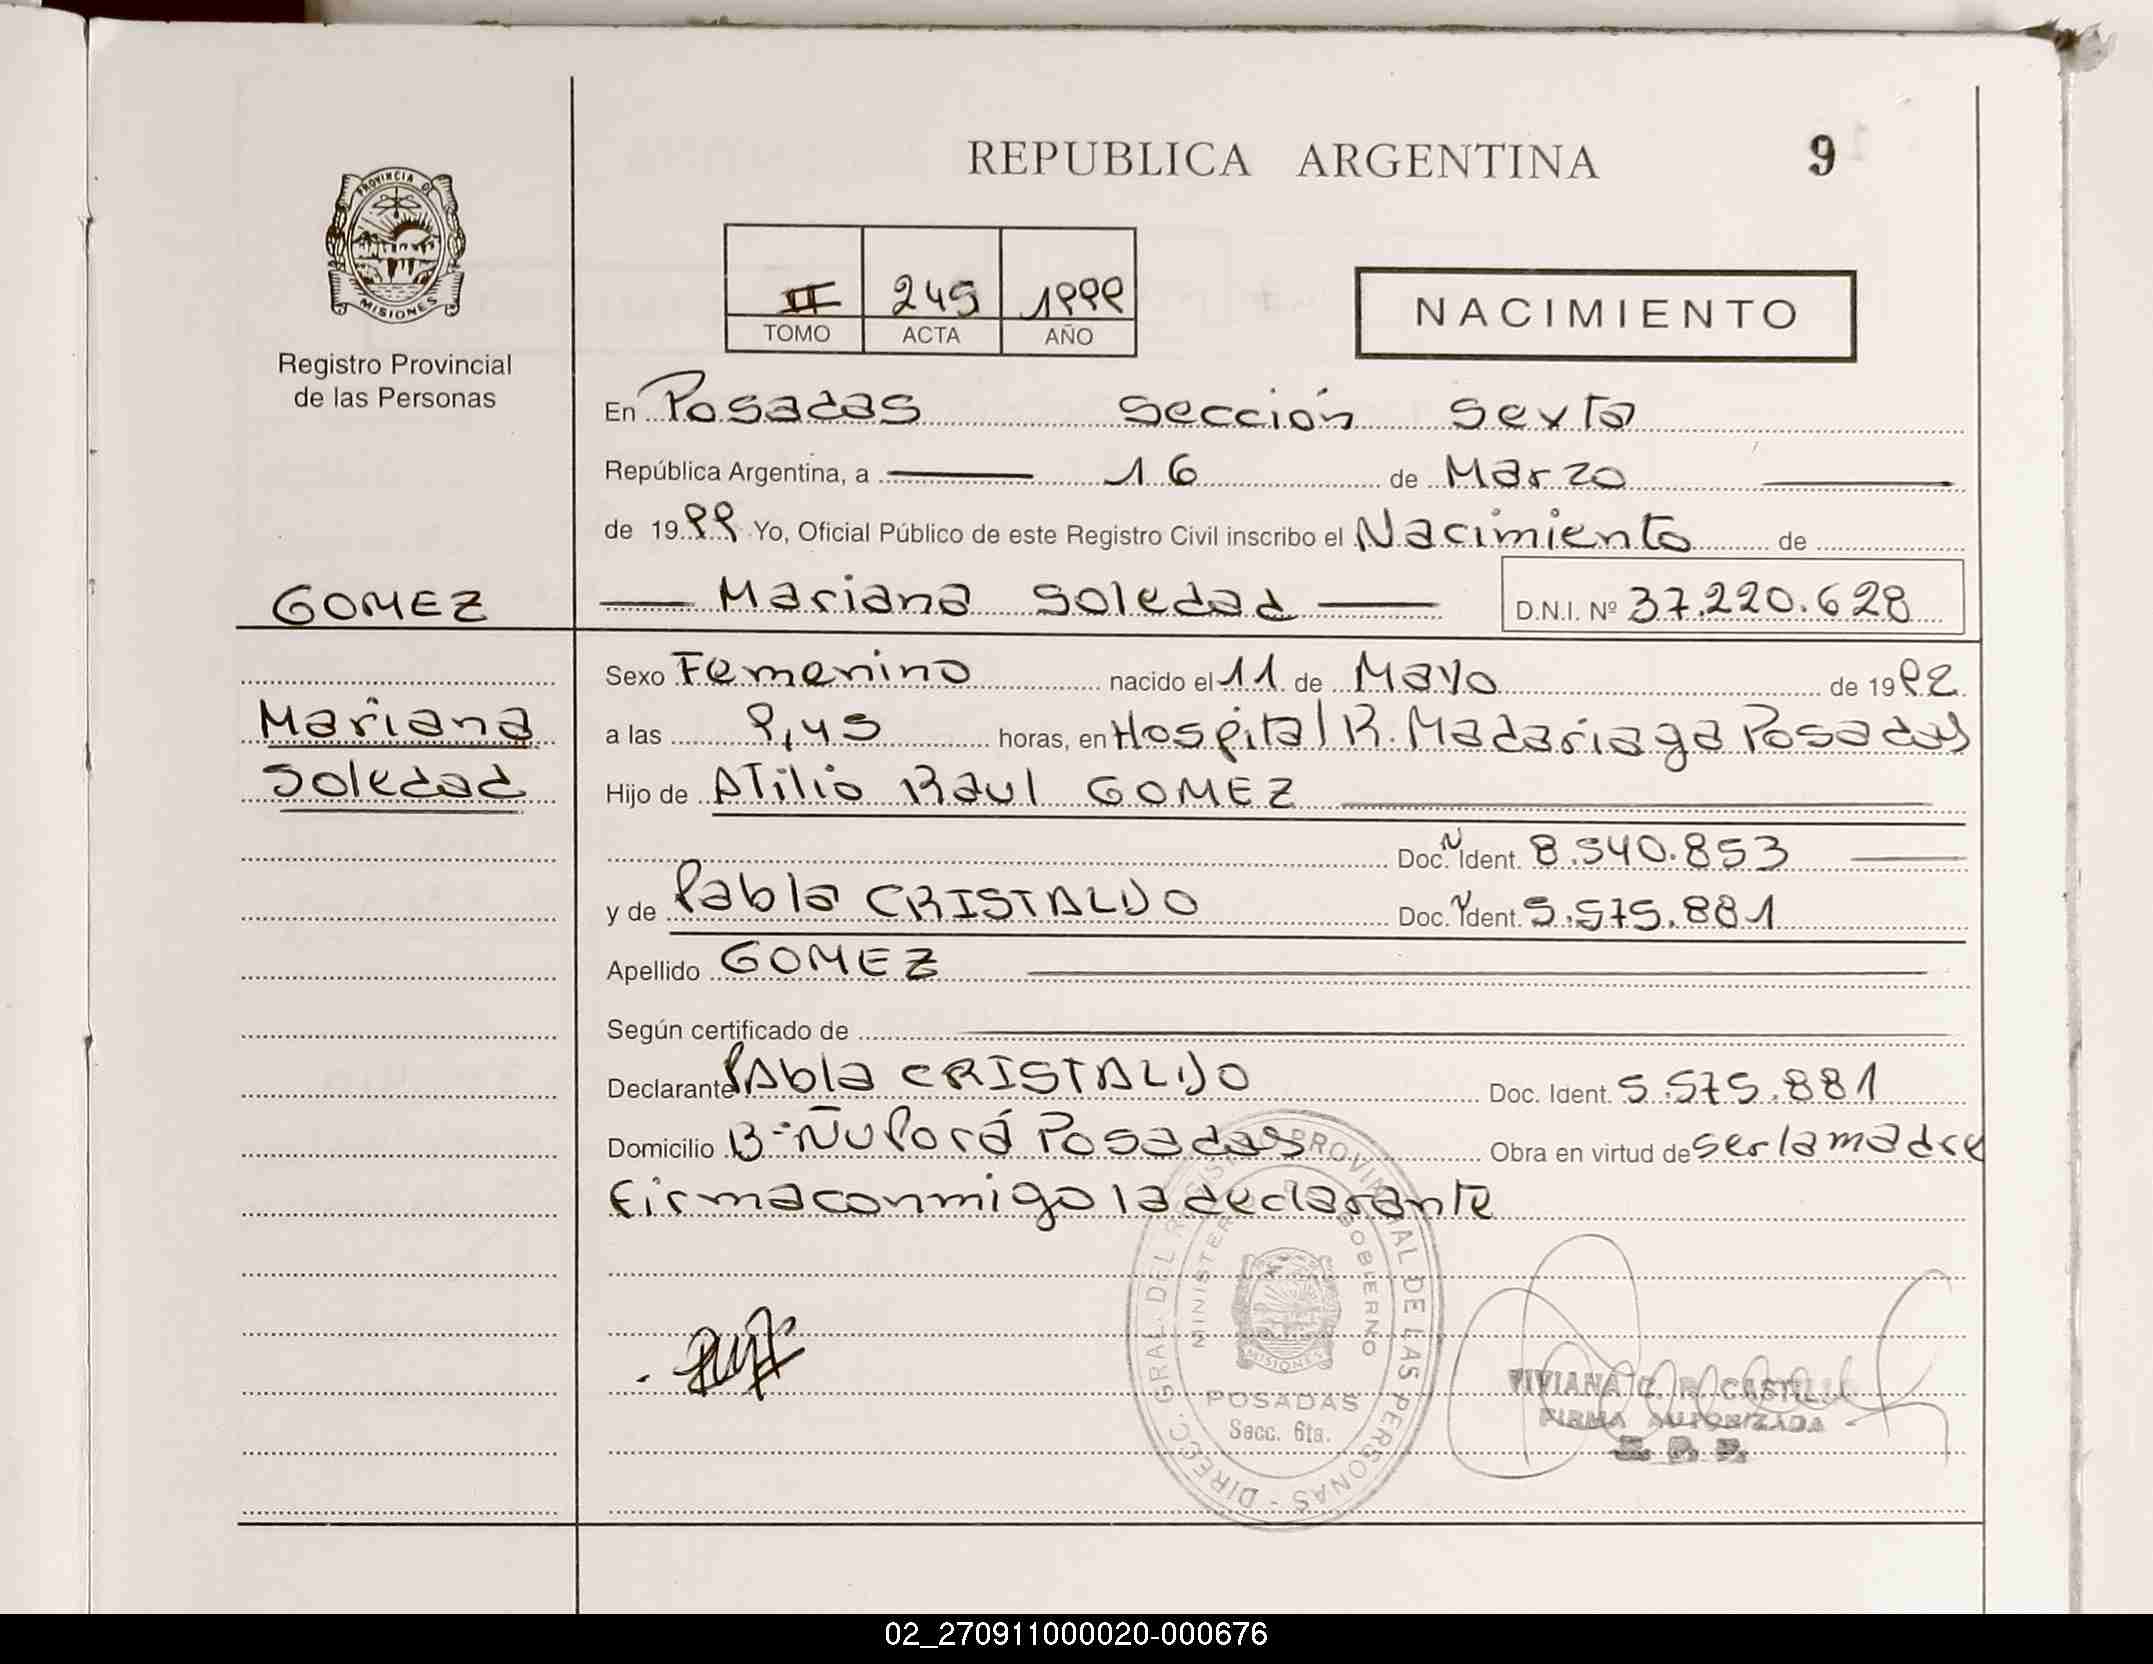 REPUBLICA ARGENTINA
9
PROVINCIA DE
MISIONES
Registro Provincial
de las Personas
II 245 1999
TOMO ACTA AÑO
NACIMIENTO
En Posadas Sección Sexta
República Argentina, a 16 de Marzo
de 1999 Yo, Oficial Público de este Registro Civil inscribo el Nacimiento de
GOMEZ
Mariana Soledad D.N.I. Nº 37.220.628
Sexo Femenino nacido el 11 de Mayo de 1992
Mariana
a las 9,45 horas, en Hospital R. Madariaga Posadas
Soledad
Hijo de Atilio Raul GOMEZ
Doc. Ident. 8.540.853
y de Pabla CRISTALDO Doc. Ident. 5.575.881
Apellido GOMEZ
Según certificado de
Declarante Pabla CRISTALDO Doc. Ident. 5.575.881
Domicilio Bº Ñu Porá Posadas Obra en virtud de ser la madre
firma conmigo la declarante
DIRECC. GRAL. DEL REGISTRO PROVINCIAL DE LAS PERSONAS -
MINISTERIO GOBIERNO
MISIONES
POSADAS
Secc. 6ta.
VIVIANA C. R. CASTILLO
FIRMA AUTORIZADA
R. P. P.
02_270911000020-000676